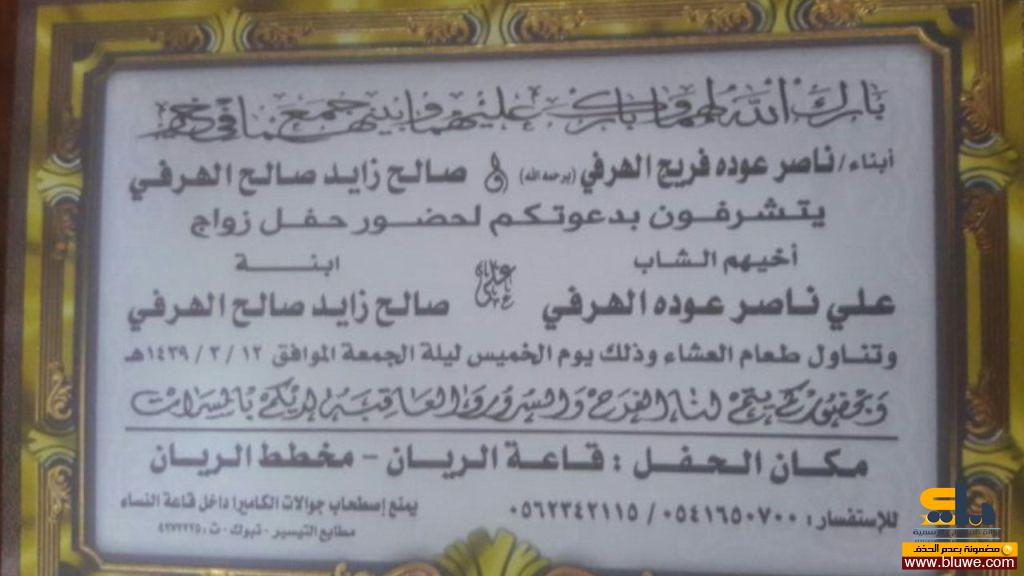 بارك الله لهما وبارك عليهما وجمع بينهما في خير
أبناء/ ناصر عوده فريج الهرفي (يرحمه الله) و صالح زايد صالح الهرفي
يتشرفون بدعوتكم لحضور حفل زواج
أخيهم الشاب ابنة
علي ناصر عوده الهرفي على صالح زايد صالح الهرفي
وتناول طعام العشاء وذلك يوم الخميس ليلة الجمعة الموافق ١٢ / ٣ / ١٤٣٩هـ
وبحضوركم يتم لنا الفرح والسرور والعاقبة لديكم بالمسرات
مكان الحفل : قاعة الريان - مخطط الريان
للإستفسار : ٠٥٤١٦٥٠٧٠٠ / ٠٥٦٢٣٤٢١١٥ يمنع إسطحاب جوالات الكاميرا داخل قاعة النساء
مطابع التيسير - تبوك - ت : ٤٢٢٢٢٢٥
بلي
مضمونة بعدم الحذف
www.bluwe.com